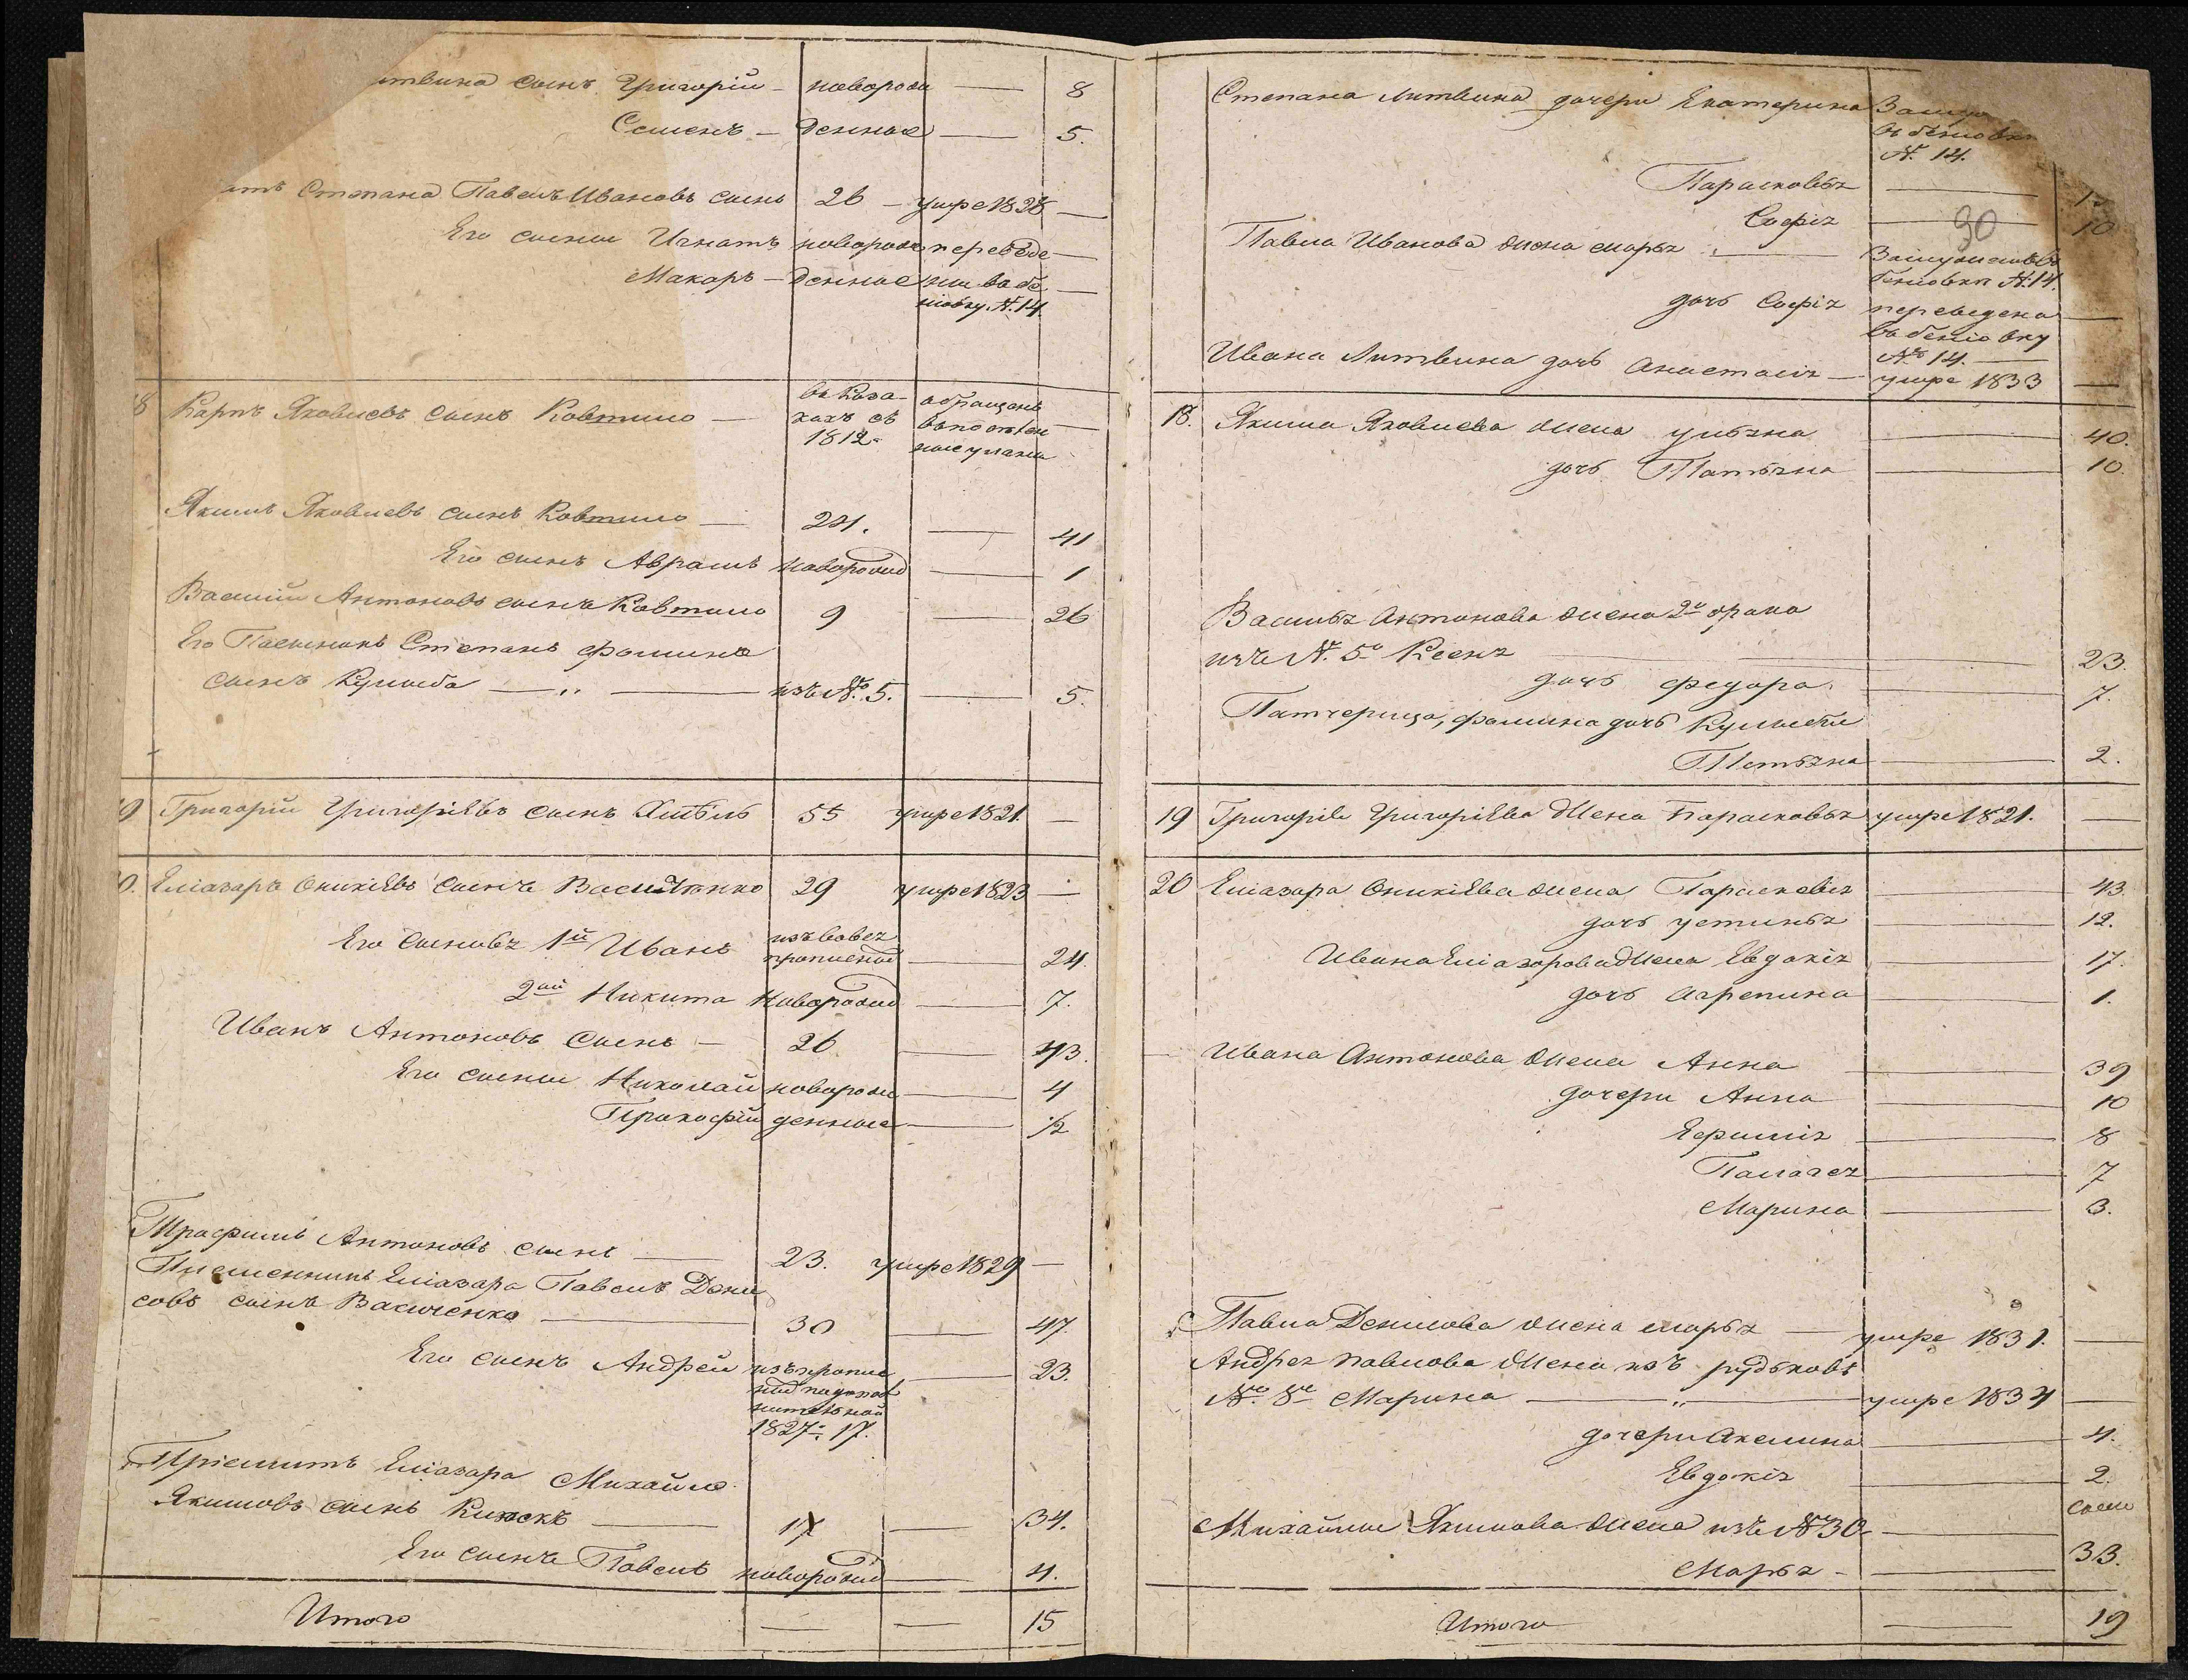 итвина сынъ Григорій — новорож — 8
Семенъ — денные — 5.
Степана Павелъ Ивановъ сынъ 26 — умре 1828 —
Его сыны Игнатъ новорож переведе —
Макаръ — денные ны въ бе —
ловку. №. 14.
18 Карпъ Яковлевъ сынъ Ковтило — въ Коза- обращенъ
кахъ съ —
1812.
Якимъ Яковлевъ сынъ Ковтило — 21. — 41
Его сынъ Аврамъ новорожд — 1
Василій Антоновъ сынъ Ковтило 9 — 26
Его Пасынокъ Степанъ Фоминъ
сынъ Кулыба — „ — изъ №. 5. — 5.
19 Григорій Григоріевъ сынъ Хмѣль 55 умре 1821. —
20. Еліазаръ Оникіевъ сынъ 29 умре 1823 —
Его сыновья 1й Иванъ — 24.
2ой Никита новорожд — 7.
Иванъ Антоновъ сынъ — 26 — 43.
Его сыны Николай новорож — 4
Прокофій денные — 1/2
Трофимъ Антоновъ сынъ — 23. умре 1829 —
Племенникъ Еліазара Павелъ Дени
совъ сынъ Васыленко — 30 — 47.
Его сынъ Андрей изъ пропис — 23.
1827: 17.
Пріемышъ Еліазара Михайло
Якимовъ сынъ — 17 — 34.
Его сынъ Павелъ новорожд — 4.
Итого — — 15
Степана Литвина дочери Екатерина Замуж
въ бемовк
№. 14.
Парасковья —
Софія — 10
90
Павла Иванова жена Марья — Замужемъ въ
№. 14.
дочь Софія переведена —
въ
№ 14. —
Ивана Литвина дочь Анастасія — умре 1833 —
18. Якима Яковлева жена Ульяна — 40.
дочь Татьяна — 10.
Василья Антонова жена 2го брака
изъ №. 5го Ксенья — 23.
дочь Федора — 7.
Патчерица, Фомина дочь Кулыбы
Татьяна — 2.
19 Григорія Григоріева жена Парасковья умре 1821. —
20 Еліазара Оникіева жена Парасковья — 43.
дочь Устинья — 12.
Ивана Еліазарова жена Евдокія — 17.
дочь Агрепина — 1.
Ивана Антонова жена Анна — 39
дочери Анна — 10
Ефимія — 8
Палагея — 7
Марина — 3.
Павла Денисова жена Марья — умре 1831. —
Андрея Павлова жена изъ рудьковъ
№. 8го Марина — „ — умре 1834 —
дочери Акелина — 4.
Евдокія — 2.
Михайлы Якимова жена изъ № 30. —
Марья — — 33.
Итого — 19